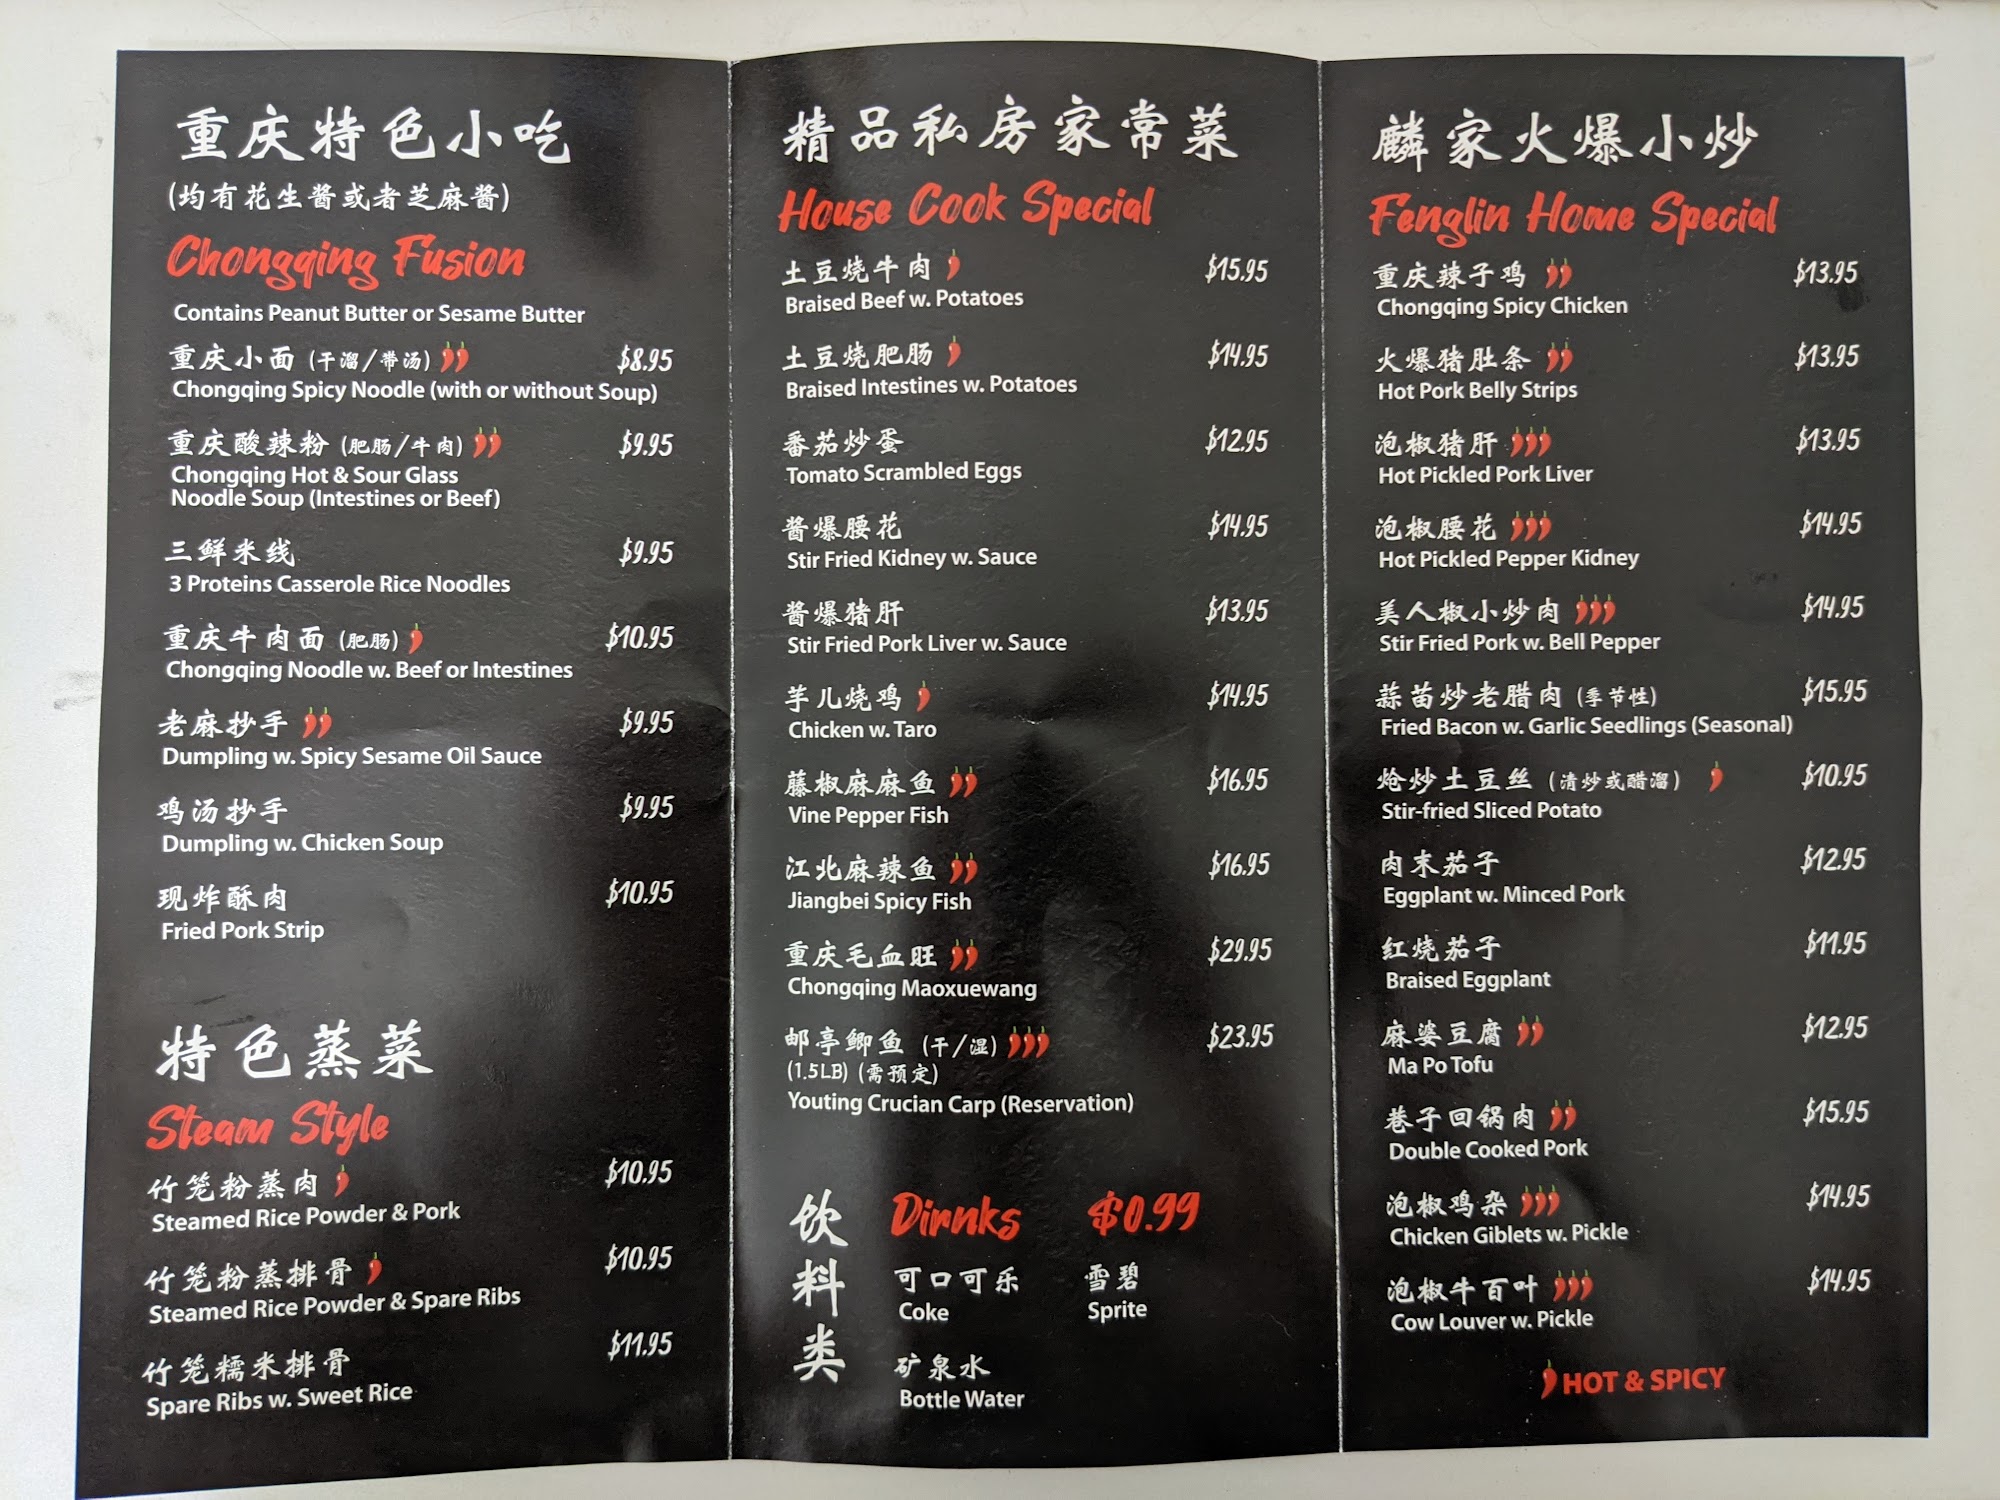 重庆特色小吃
(均有花生酱或者芝麻酱)
Chongqing Fusion
Contains Peanut Butter or Sesame Butter
重庆小面 (干溜/带汤) $8.95
Chongqing Spicy Noodle (with or without Soup)
重庆酸辣粉 (肥肠/牛肉) $9.95
Chongqing Hot & Sour Glass
Noodle Soup (Intestines or Beef)
三鲜米线 $9.95
3 Proteins Casserole Rice Noodles
重庆牛肉面 (肥肠) $10.95
Chongqing Noodle w. Beef or Intestines
老麻抄手 $9.95
Dumpling w. Spicy Sesame Oil Sauce
鸡汤抄手 $9.95
Dumpling w. Chicken Soup
现炸酥肉 $10.95
Fried Pork Strip
特色蒸菜
Steam Style
竹笼粉蒸肉 $10.95
Steamed Rice Powder & Pork
竹笼粉蒸排骨 $10.95
Steamed Rice Powder & Spare Ribs
竹笼糯米排骨 $11.95
Spare Ribs w. Sweet Rice
精品私房家常菜
House Cook Special
土豆烧牛肉 $15.95
Braised Beef w. Potatoes
土豆烧肥肠 $14.95
Braised Intestines w. Potatoes
番茄炒蛋 $12.95
Tomato Scrambled Eggs
酱爆腰花 $14.95
Stir Fried Kidney w. Sauce
酱爆猪肝 $13.95
Stir Fried Pork Liver w. Sauce
芋儿烧鸡 $14.95
Chicken w. Taro
藤椒麻麻鱼 $16.95
Vine Pepper Fish
江北麻辣鱼 $16.95
Jiangbei Spicy Fish
重庆毛血旺 $29.95
Chongqing Maoxuewang
邮亭鲫鱼 (干/湿) $23.95
(1.5LB) (需预定)
Youting Crucian Carp (Reservation)
饮料类
Dirnks $0.99
可口可乐 雪碧
Coke Sprite
矿泉水
Bottle Water
麟家火爆小炒
Fenglin Home Special
重庆辣子鸡 $13.95
Chongqing Spicy Chicken
火爆猪肚条 $13.95
Hot Pork Belly Strips
泡椒猪肝 $13.95
Hot Pickled Pork Liver
泡椒腰花 $14.95
Hot Pickled Pepper Kidney
美人椒小炒肉 $14.95
Stir Fried Pork w. Bell Pepper
蒜苗炒老腊肉 (季节性) $15.95
Fried Bacon w. Garlic Seedlings (Seasonal)
炝炒土豆丝 (清炒或醋溜) $10.95
Stir-fried Sliced Potato
肉末茄子 $12.95
Eggplant w. Minced Pork
红烧茄子 $11.95
Braised Eggplant
麻婆豆腐 $12.95
Ma Po Tofu
巷子回锅肉 $15.95
Double Cooked Pork
泡椒鸡杂 $14.95
Chicken Giblets w. Pickle
泡椒牛百叶 $14.95
Cow Louver w. Pickle
HOT & SPICY